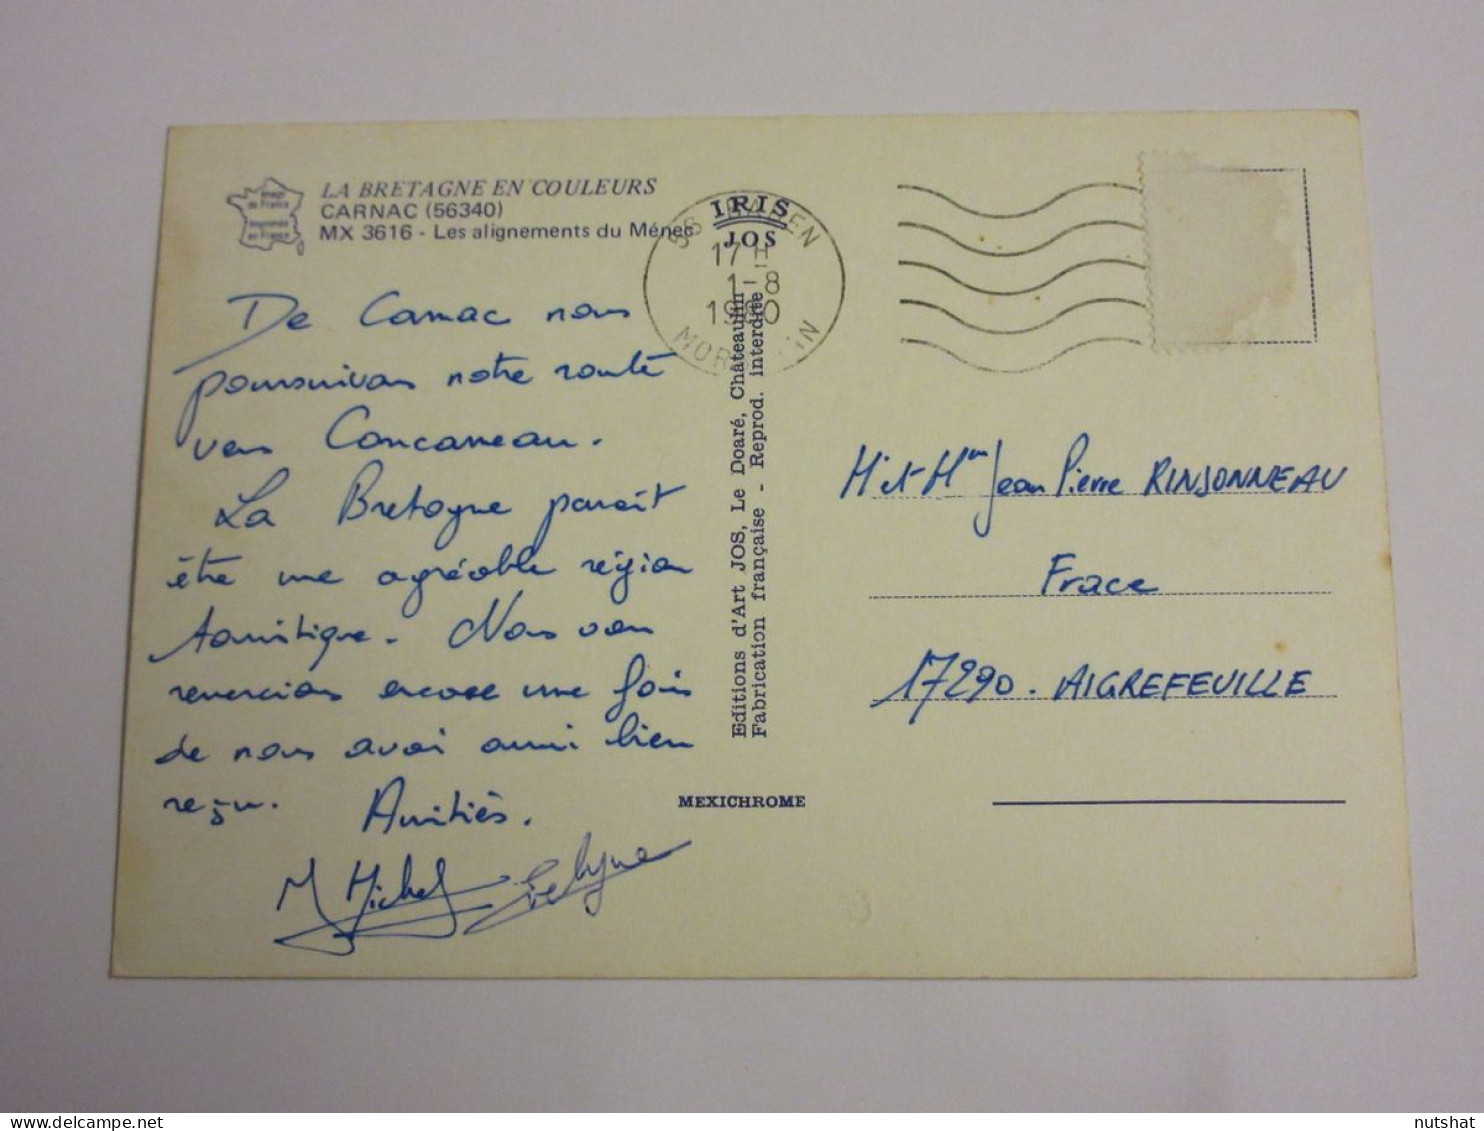 LA BRETAGNE EN COULEURS
CARNAC (56340)
MX 3616 - Les alignements du Ménec
Imagé
de France
Imprimée
en France
IRIS
JOS
17 H
1 - 8
1980
MORBIHAN
De Carnac nous
poursuivons notre route
vers Concarneau.
La Bretagne parait
être une agréable région
touristique. Nous vous
remercions encore une fois
de nous avoir aussi bien
reçu. Amitiés.
M Michel Evelyne
Editions d'Art JOS, Le Doaré, Châteaulin
Fabrication française - Reprod. interdite
MEXICHROME
M et Mme Jean Pierre RINJONNEAU
Frace
17290. AIGREFEUILLE
nutshat